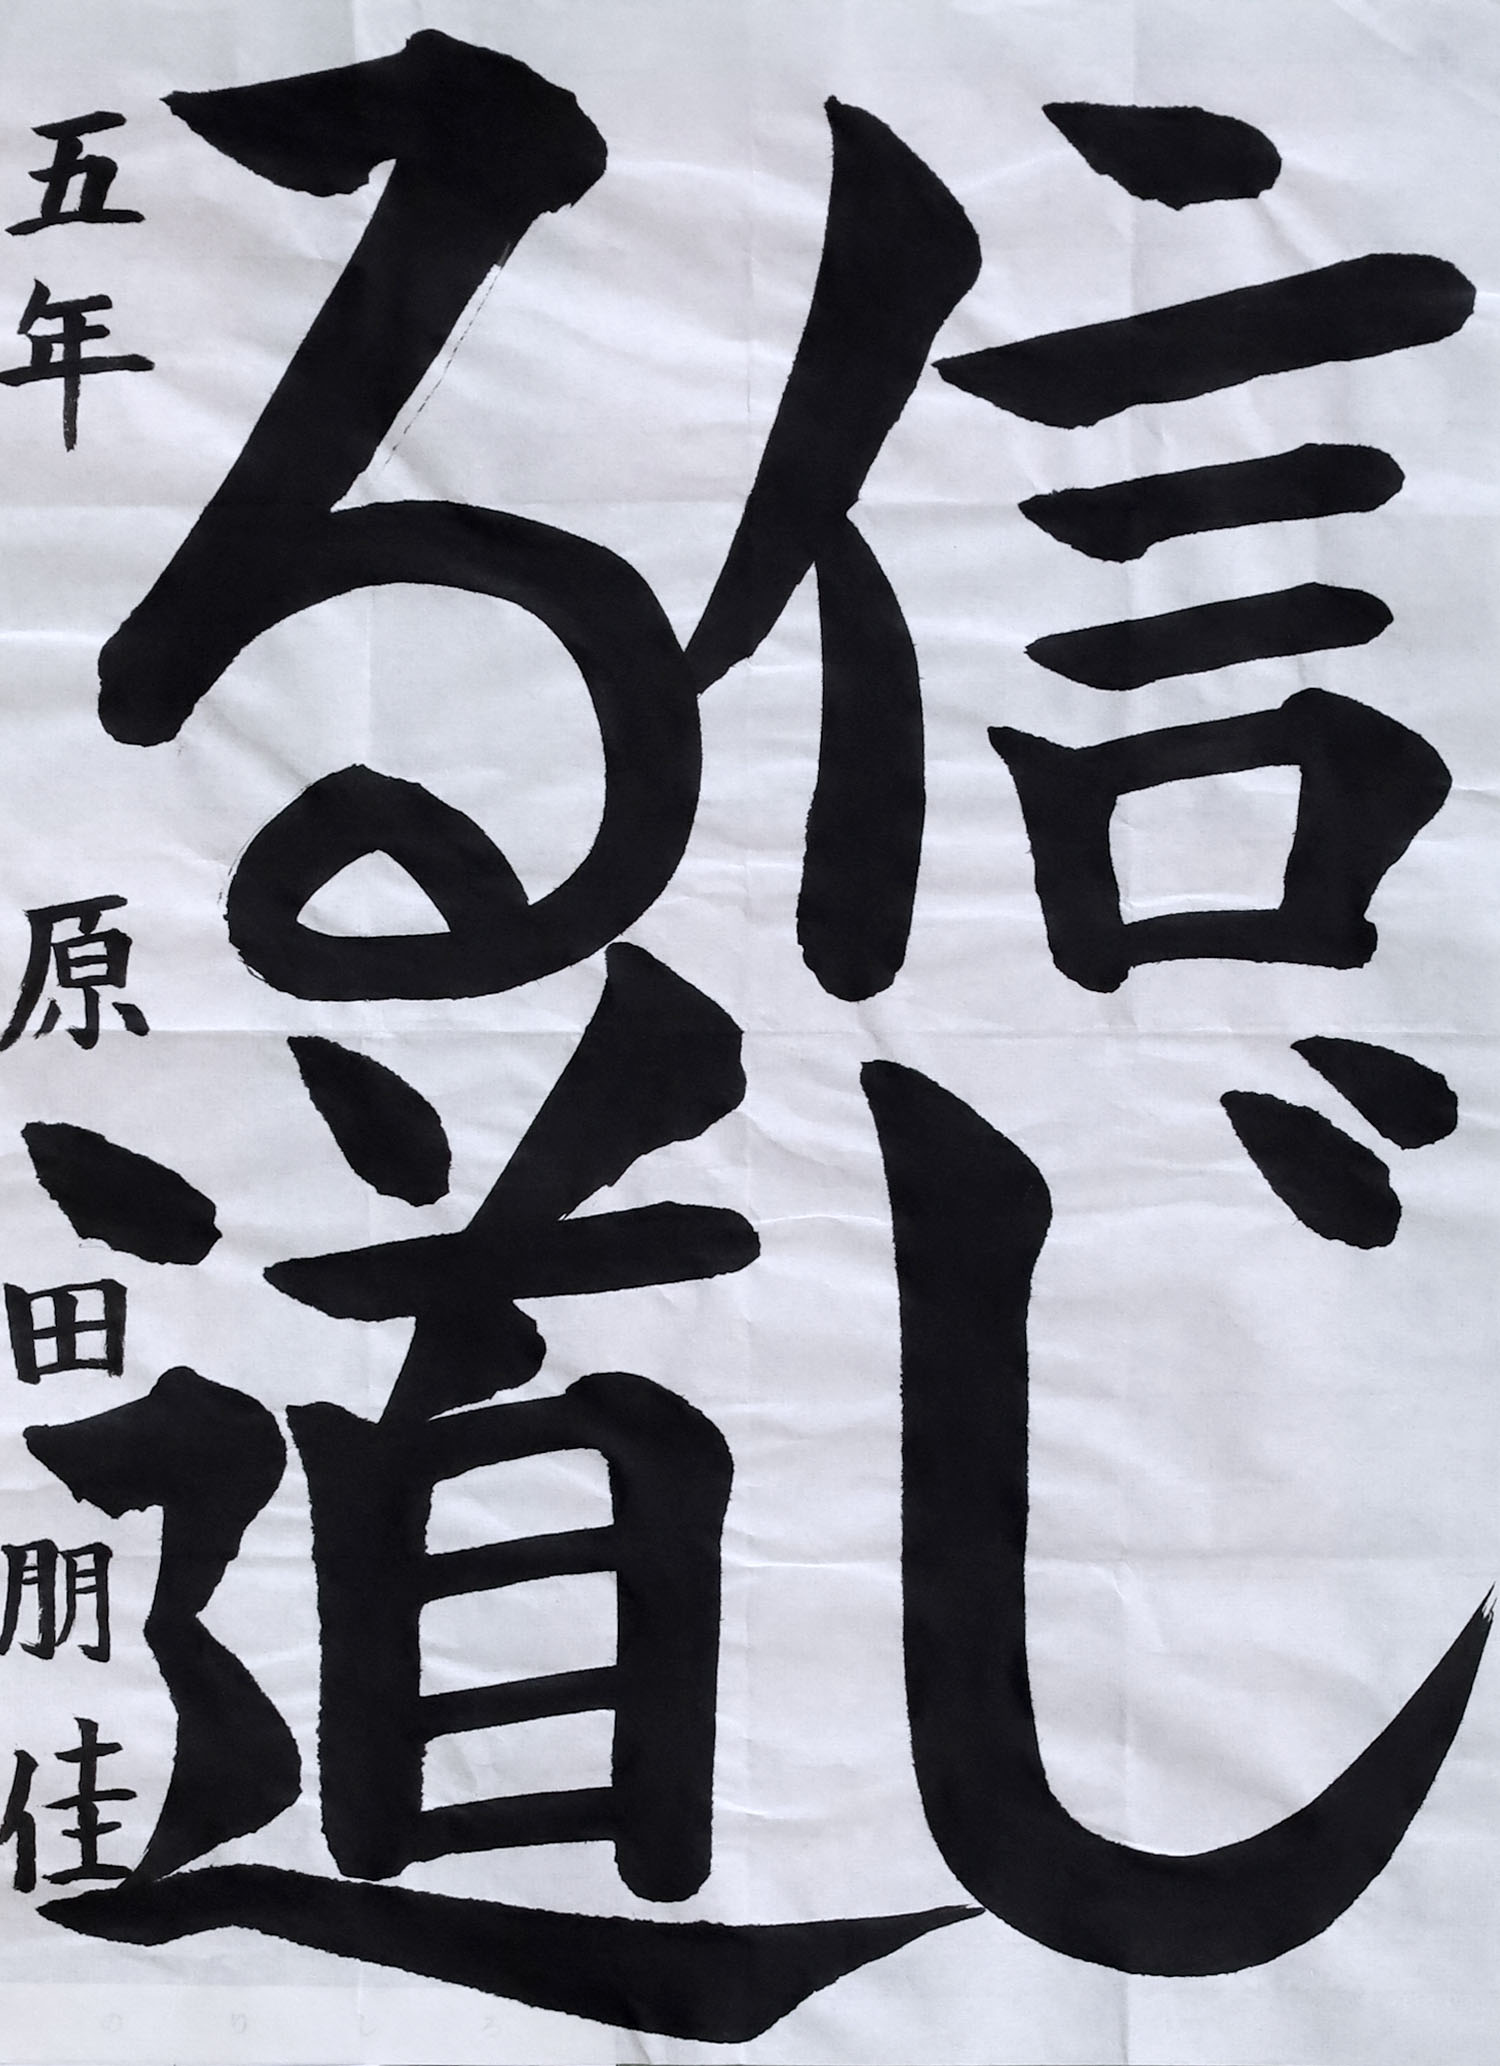 信じ
る道
五年 原田朋佳